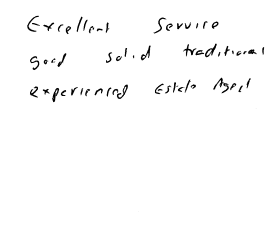 Excellent Service
good solid traditional
experienced Estate Agent